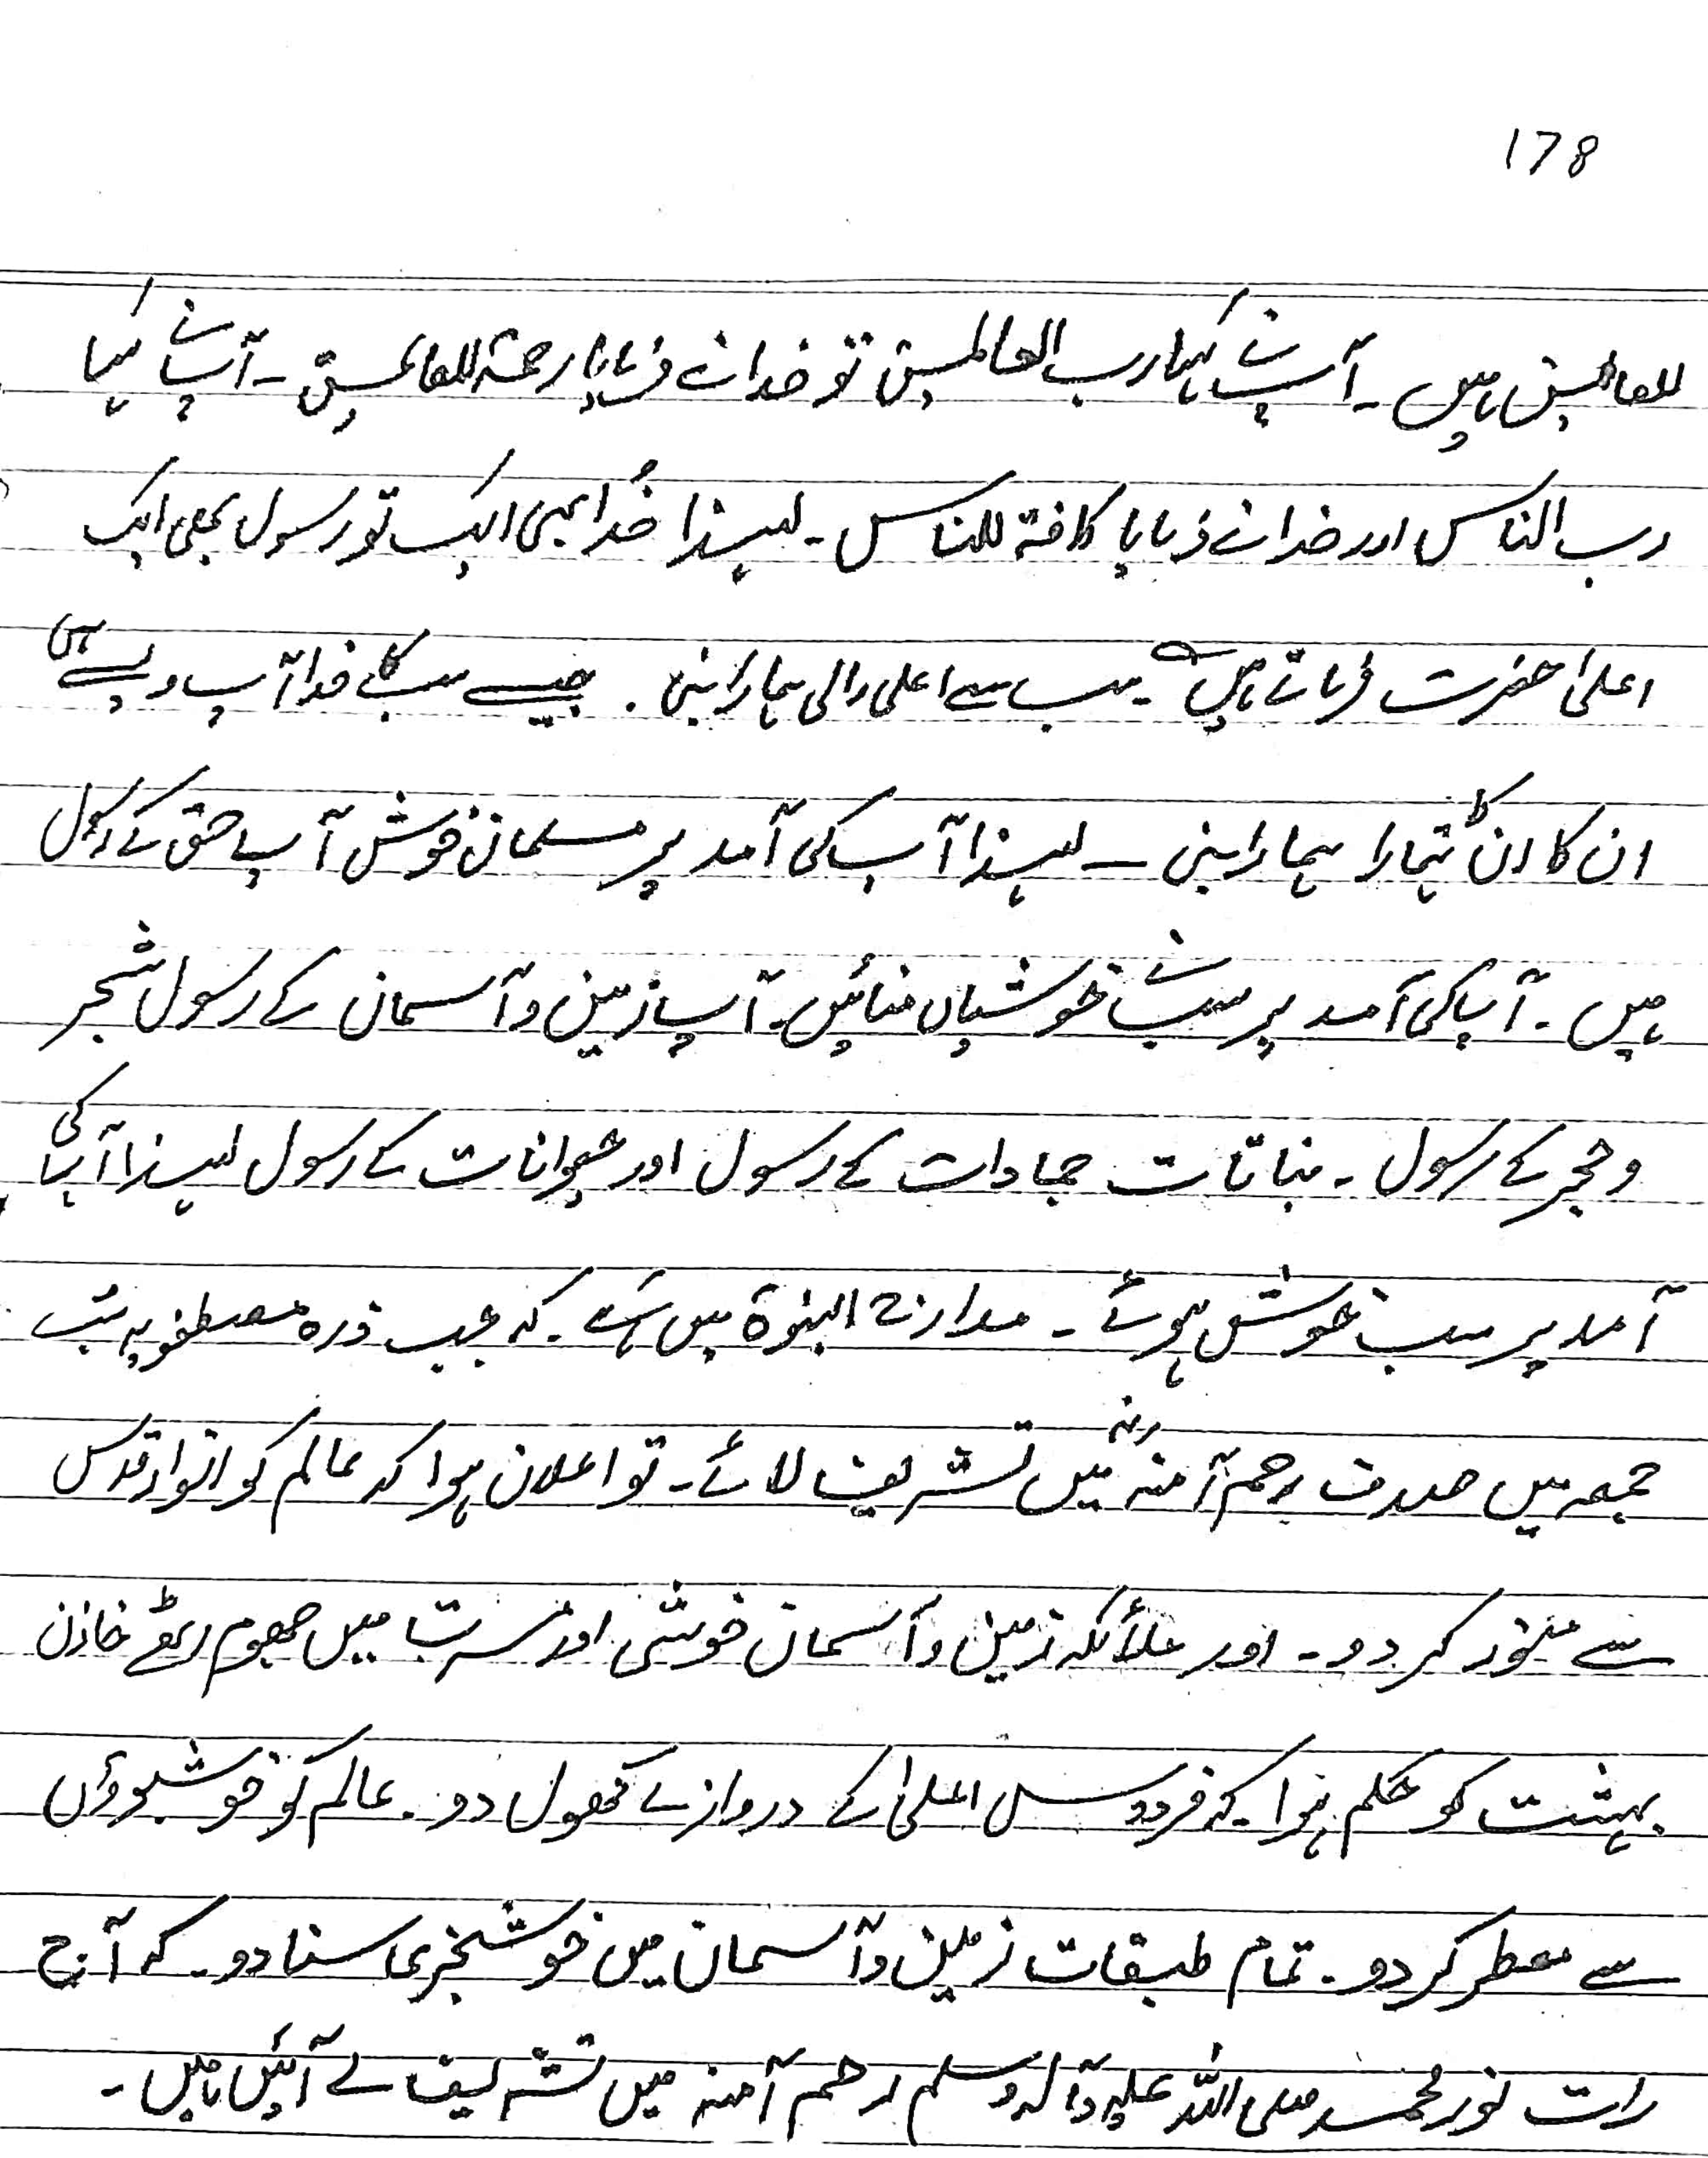 178
للعالمین ہیں ۔ آپ نے کہا رب العالمین تو خدا نے فرمایا رحمۃ للعالمین ۔ آپ نے کہا
رب الناس اور خدا نے فرمایا کافۃ للناس ۔ لہذا خُدا بھی ایک تو رسول بھی ایک
اعلیٰ حضرت فرماتے ہیں ۔ سب سے اعلی والی ہمارا نبی . جیسے سب کا خدا ایک ویسے ہی
ان کا ان کا تمہارا ہمارا نبی ۔ لہذا آپ کی آمد پر مسلمان خوش آپ حق کے رسول
ہیں ۔ آپ کی آمد پر سب نے خوشیاں منائیں ۔ آپ زمین و آسمان کے رسول شجر
و حجر کے رسول ۔ نباتات جمادات کے رسول اور حیوانات کے رسول لہذا آپ کی
آمد پر سب خوش ہوئے ۔ مدارج النبوۃ میں ہے ۔ کہ جب ذرہ مصطفویہ شب
جمعہ میں صدف رحم آمنہ رضہ میں تشریف لائے ۔ تو اعلان ہوا کہ عالم کو انوار قدس
سے منور کر دو ۔ اور ملائکہ زمین و آسمان خوشی اور مسرت میں جھوم اٹھے خازن
بہشت کو حکم ہوا ۔ کہ فردوس اعلیٰ کے دروازے کھول دو ۔ عالم کو خوشبوؤں
سے معطر کر دو ۔ تمام طبقات زمین و آسمان میں خوشخبری سنا دو ۔ کہ آج
رات نور محمد صلی اللہ علیہ وآلہ وسلم رحم آمنہ میں تشریف لے آئیں ہیں ۔